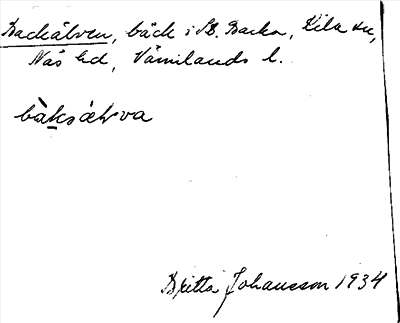 Backälven, bäck i St. Backa, Kila sn,
Näs hd, Värmlands l.
bàksæ̀lva
Britta Johansson 1934